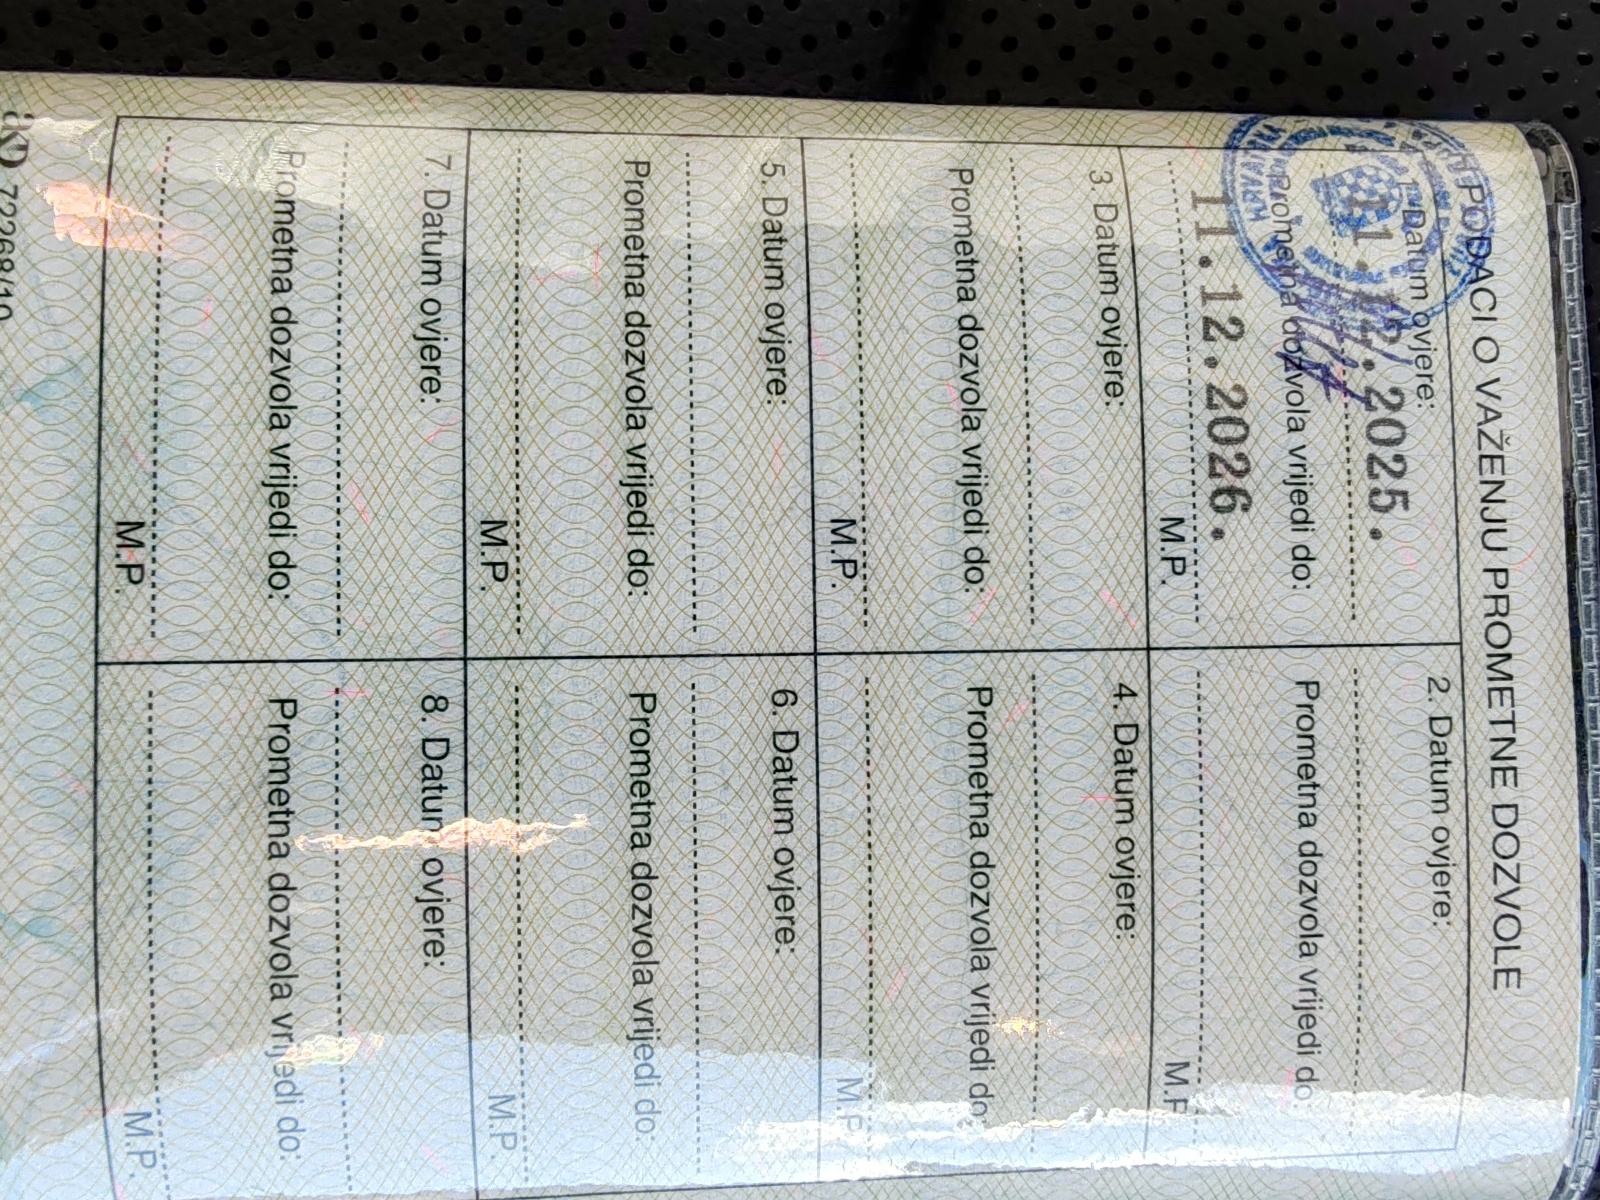 PODACI O VAŽENJU PROMETNE DOZVOLE
Datum ovjere:
.2025.
Prometna dozvola vrijedi do:
11.12.2026.
M.P.
2. Datum ovjere:
Prometna dozvola vrijedi do:
M.P
3. Datum ovjere:
Prometna dozvola vrijedi do:
M.P.
4. Datum ovjere:
Prometna dozvola vrijedi do
M.P
5. Datum ovjere:
Prometna dozvola vrijedi do:
M.P.
6. Datum ovjere:
Prometna dozvola vrijedi do:
M.P.
7. Datum ovjere:
Prometna dozvola vrijedi do:
M.P.
8. Datum ovjere:
Prometna dozvola vrijedi do:
M.P.